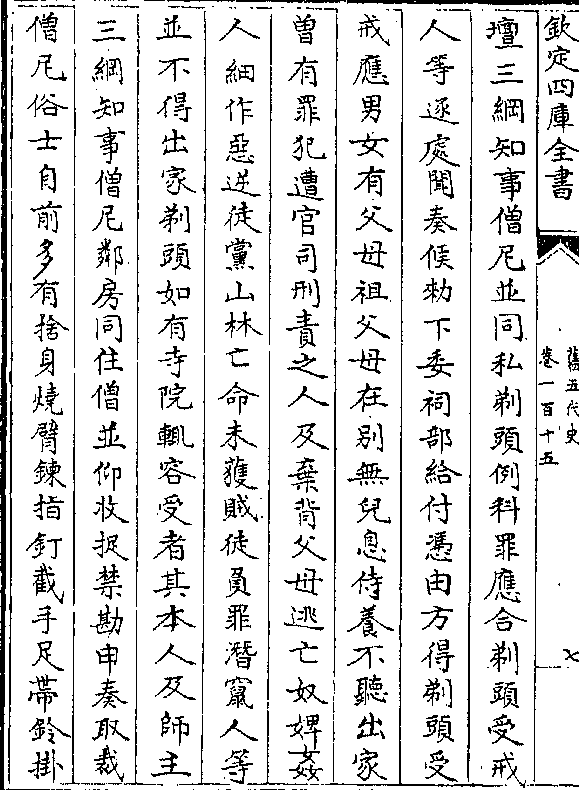 欽定四庫全書
舊五代史
卷一百十五
壇三綱知事僧尼並同私剃頭例科罪應合剃頭受戒
人等逐處聞奏候勅下委祠部給付憑由方得剃頭受
戒應男女有父母祖父母在别無兒息侍養不聽出家
曽有罪犯遭官司刑責之人及棄背父母逃亡奴婢姦
人細作惡逆徒黨山林亡命未獲賊徒負罪潛竄人等
並不得出家剃頭如有寺院輒容受者其本人及師主
三綱知事僧尼鄰房同住僧並仰收捉禁勘申奏取裁
僧尼俗士自前多有捨身燒臂鍊指釘截手足帶鈴掛